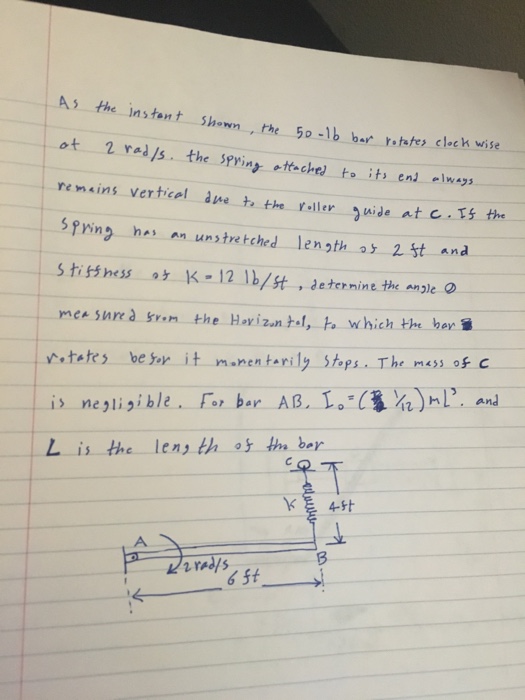 As the instant shown, the 50-lb bar rotates clock wise
at 2 rad/s. the spring attached to its end always
remains vertical due to the roller guide at C. If the
spring has an unstretched length of 2 ft and
stiffness of K = 12 lb/ft, determine the angle θ
measured from the Horizontal, to which the bar
rotates befor it momentarily stops. The mass of C
is negligible. For bar AB, I₀ = (1/12)mL². and
L is the length of the bar
C
K 4-ft
A
2 rad/s B
6 ft